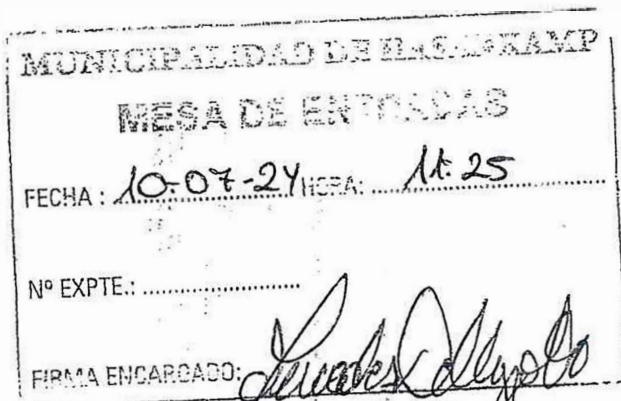 MUNICIPALIDAD DE
MESA DE ENTRADAS
FECHA : 10-07-24 HORA: 11:25
Nº EXPTE.:
FIRMA ENCARGADO: